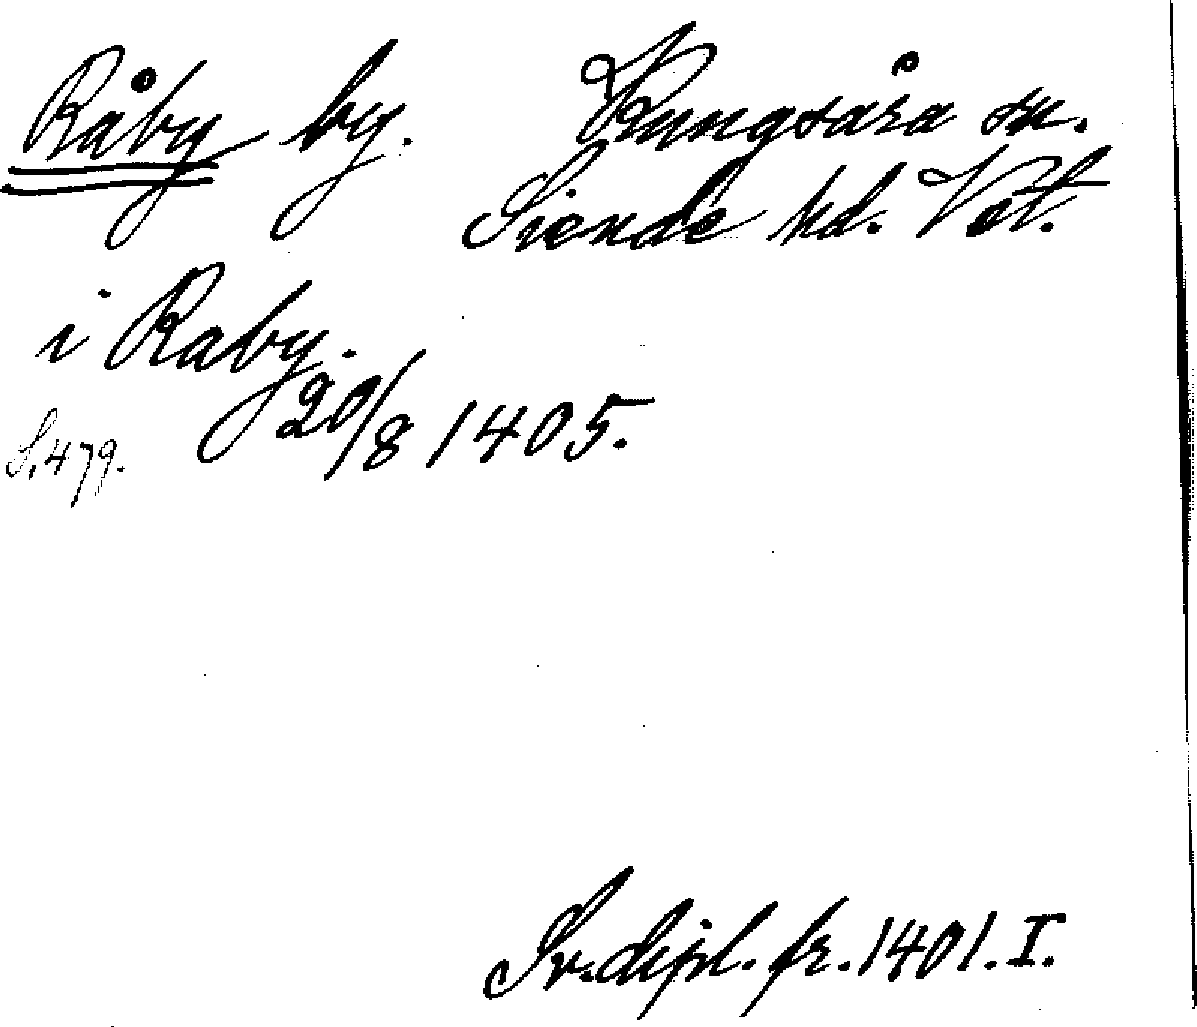 Råby by. Kungsåra sn.
Siende hd. Vst.
i Raby.
20/8 1405.
S. 479.
Sv. dipl. fr. 1401. I.